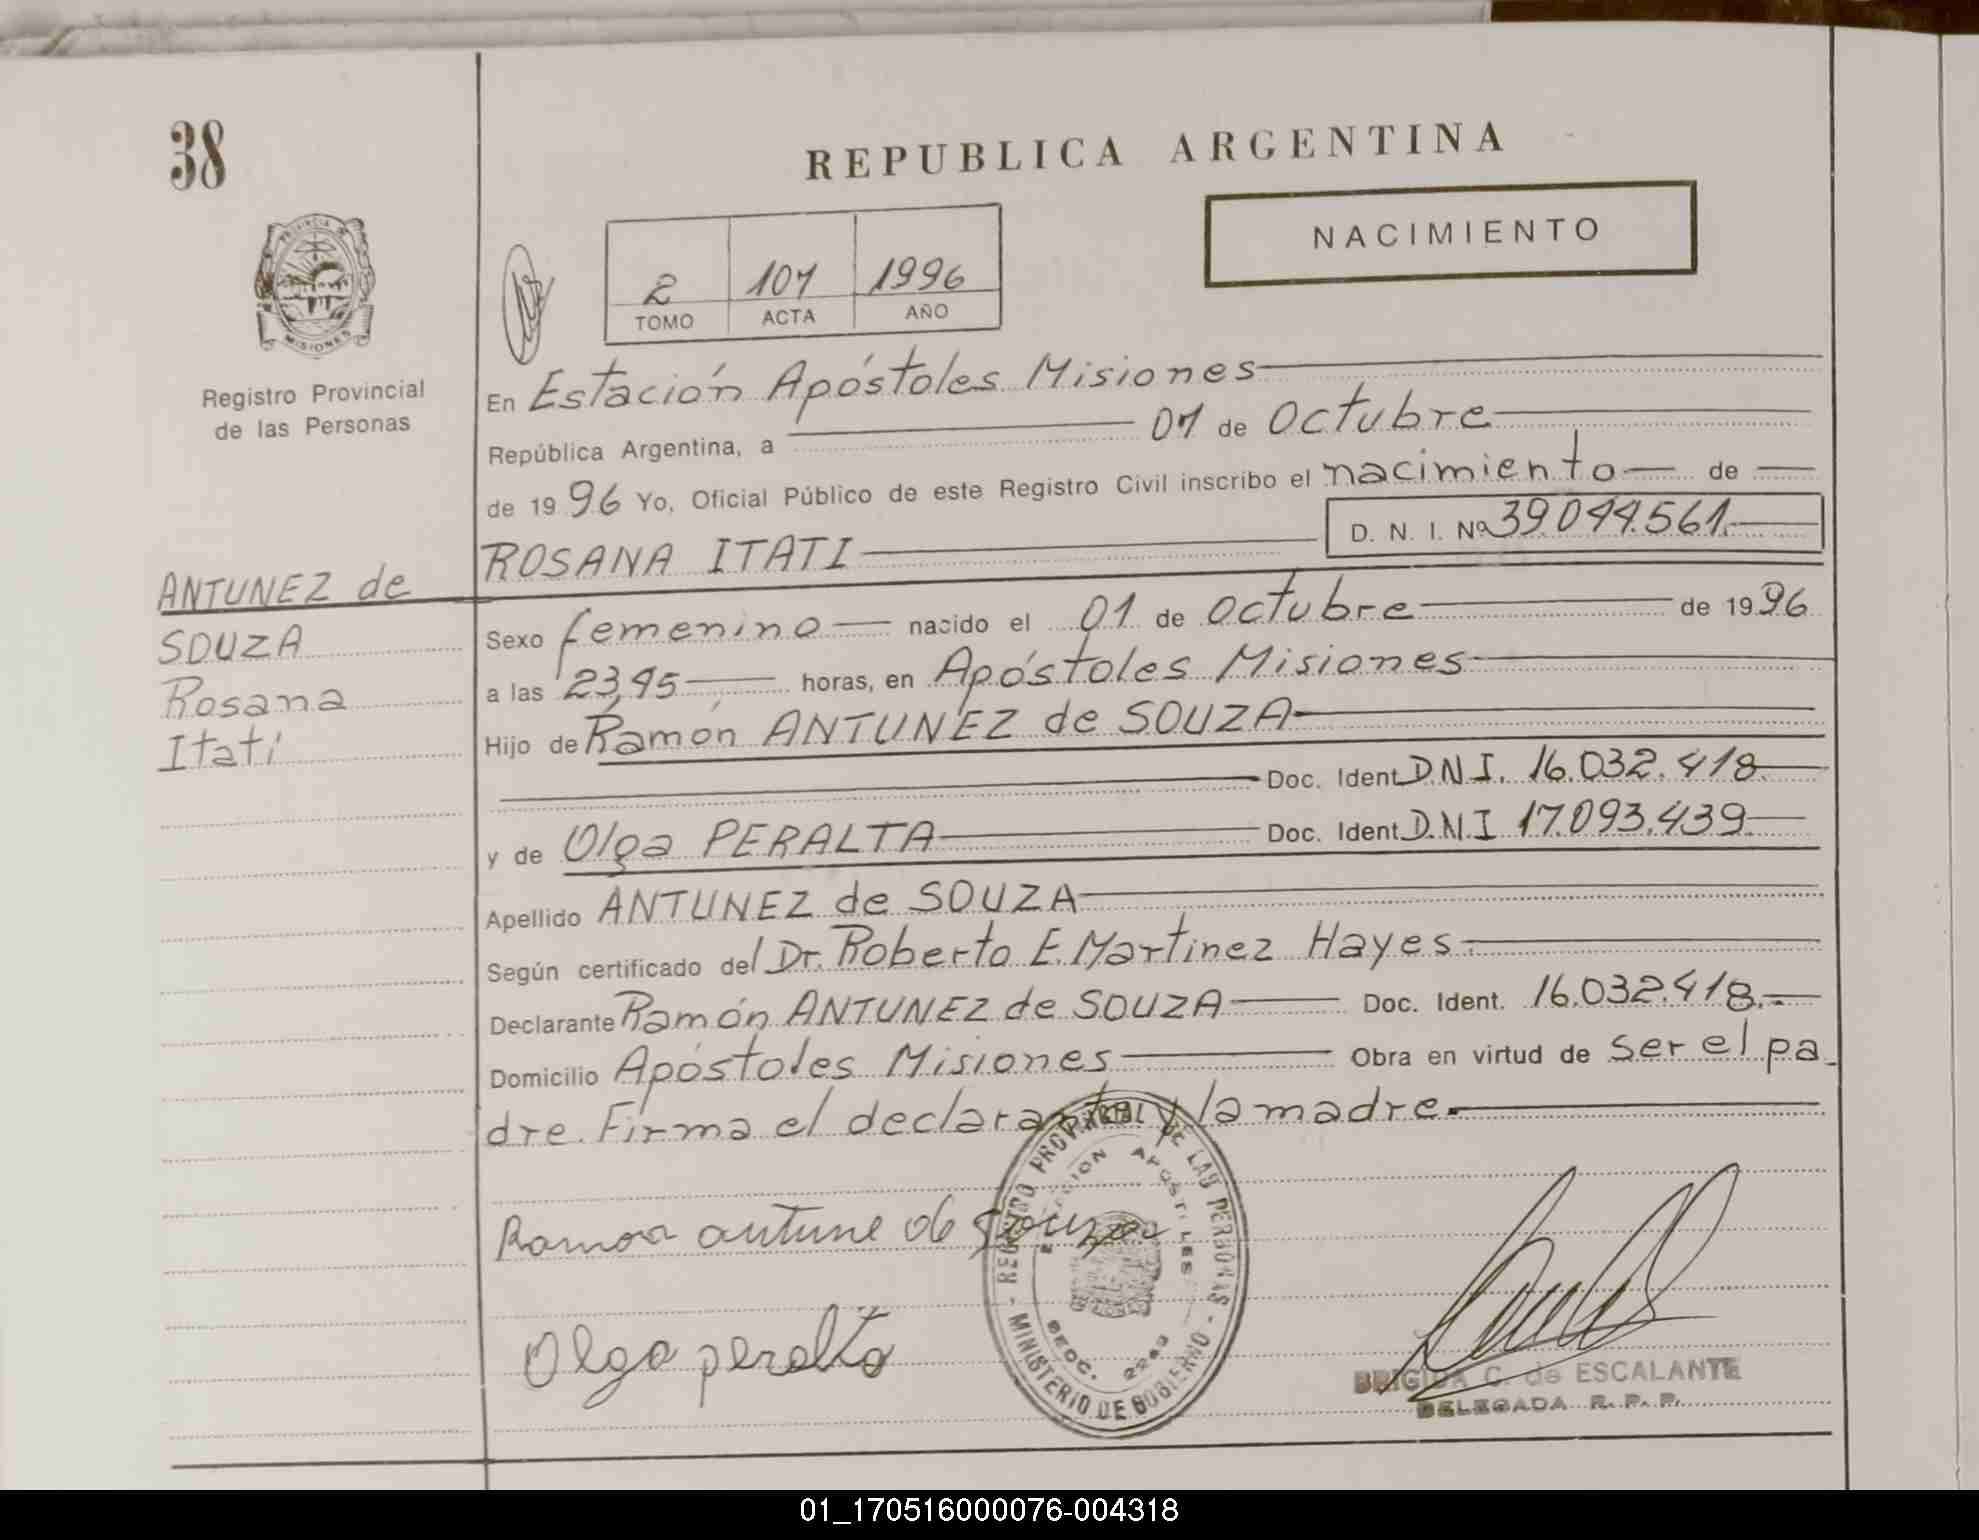 38
REPUBLICA ARGENTINA
NACIMIENTO
PROVINCIA DE
MISIONES
Registro Provincial
de las Personas
2 107 1996
TOMO ACTA AÑO
En Estación Apóstoles Misiones
República Argentina, a 07 de Octubre
de 1996 Yo, Oficial Público de este Registro Civil inscribo el nacimiento de
ROSANA ITATI D. N. I. Nº 39.044.561.
ANTUNEZ de
SOUZA
Rosana
Itatí
Sexo femenino nacido el 01 de octubre de 1996
a las 23,45 horas, en Apóstoles Misiones
Hijo de Ramón ANTUNEZ de SOUZA
Doc. Ident. D.N.I. 16.032.418.
y de Olga PERALTA Doc. Ident. D.N.I 17.093.439.
Apellido ANTUNEZ de SOUZA
Según certificado del Dr. Roberto E. Martinez Hayes.
Declarante Ramón ANTUNEZ de SOUZA Doc. Ident. 16.032.418.
Domicilio Apóstoles Misiones Obra en virtud de ser el pa
dre. Firma el declarante y la madre.
Ramon antune de Souza
Olga peralta
REGISTRO PROVINCIAL DE LAS PERSONAS - MINISTERIO DE GOBIERNO -
ESTACION APOSTOLES
SECC.
BRIGIDA C. de ESCALANTE
DELEGADA R. P. P.
01_170516000076-004318